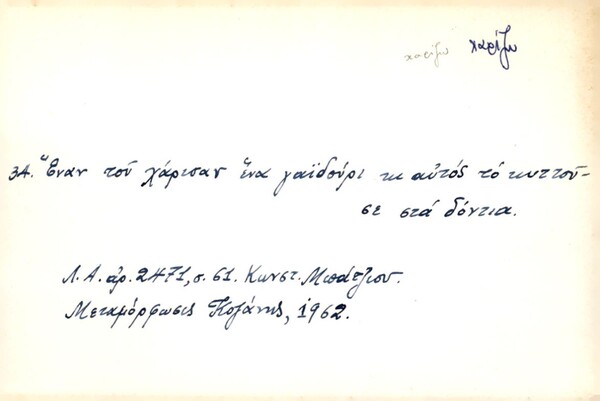 χαρίζω χαρίζω
34. Ἕναν τοῦ χάρισαν ἕνα γαϊδούρι κι αὐτός τό κυττοῦ-
σε στά δόντια.
Λ.Α. ἀρ. 2471, σ. 61. Κωνστ. Μπάτζιου.
Μεταμόρφωσις Κοζάνης, 1962.